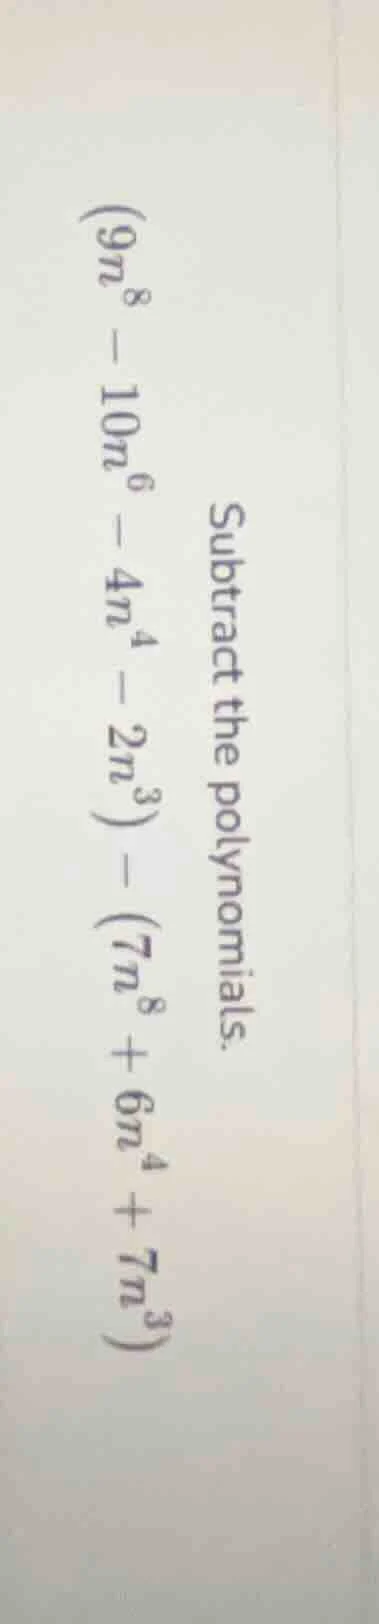 Subtract the polynomials.
(9n⁸ − 10n⁶ − 4n⁴ − 2n³) − (7n⁸ + 6n⁴ + 7n³)